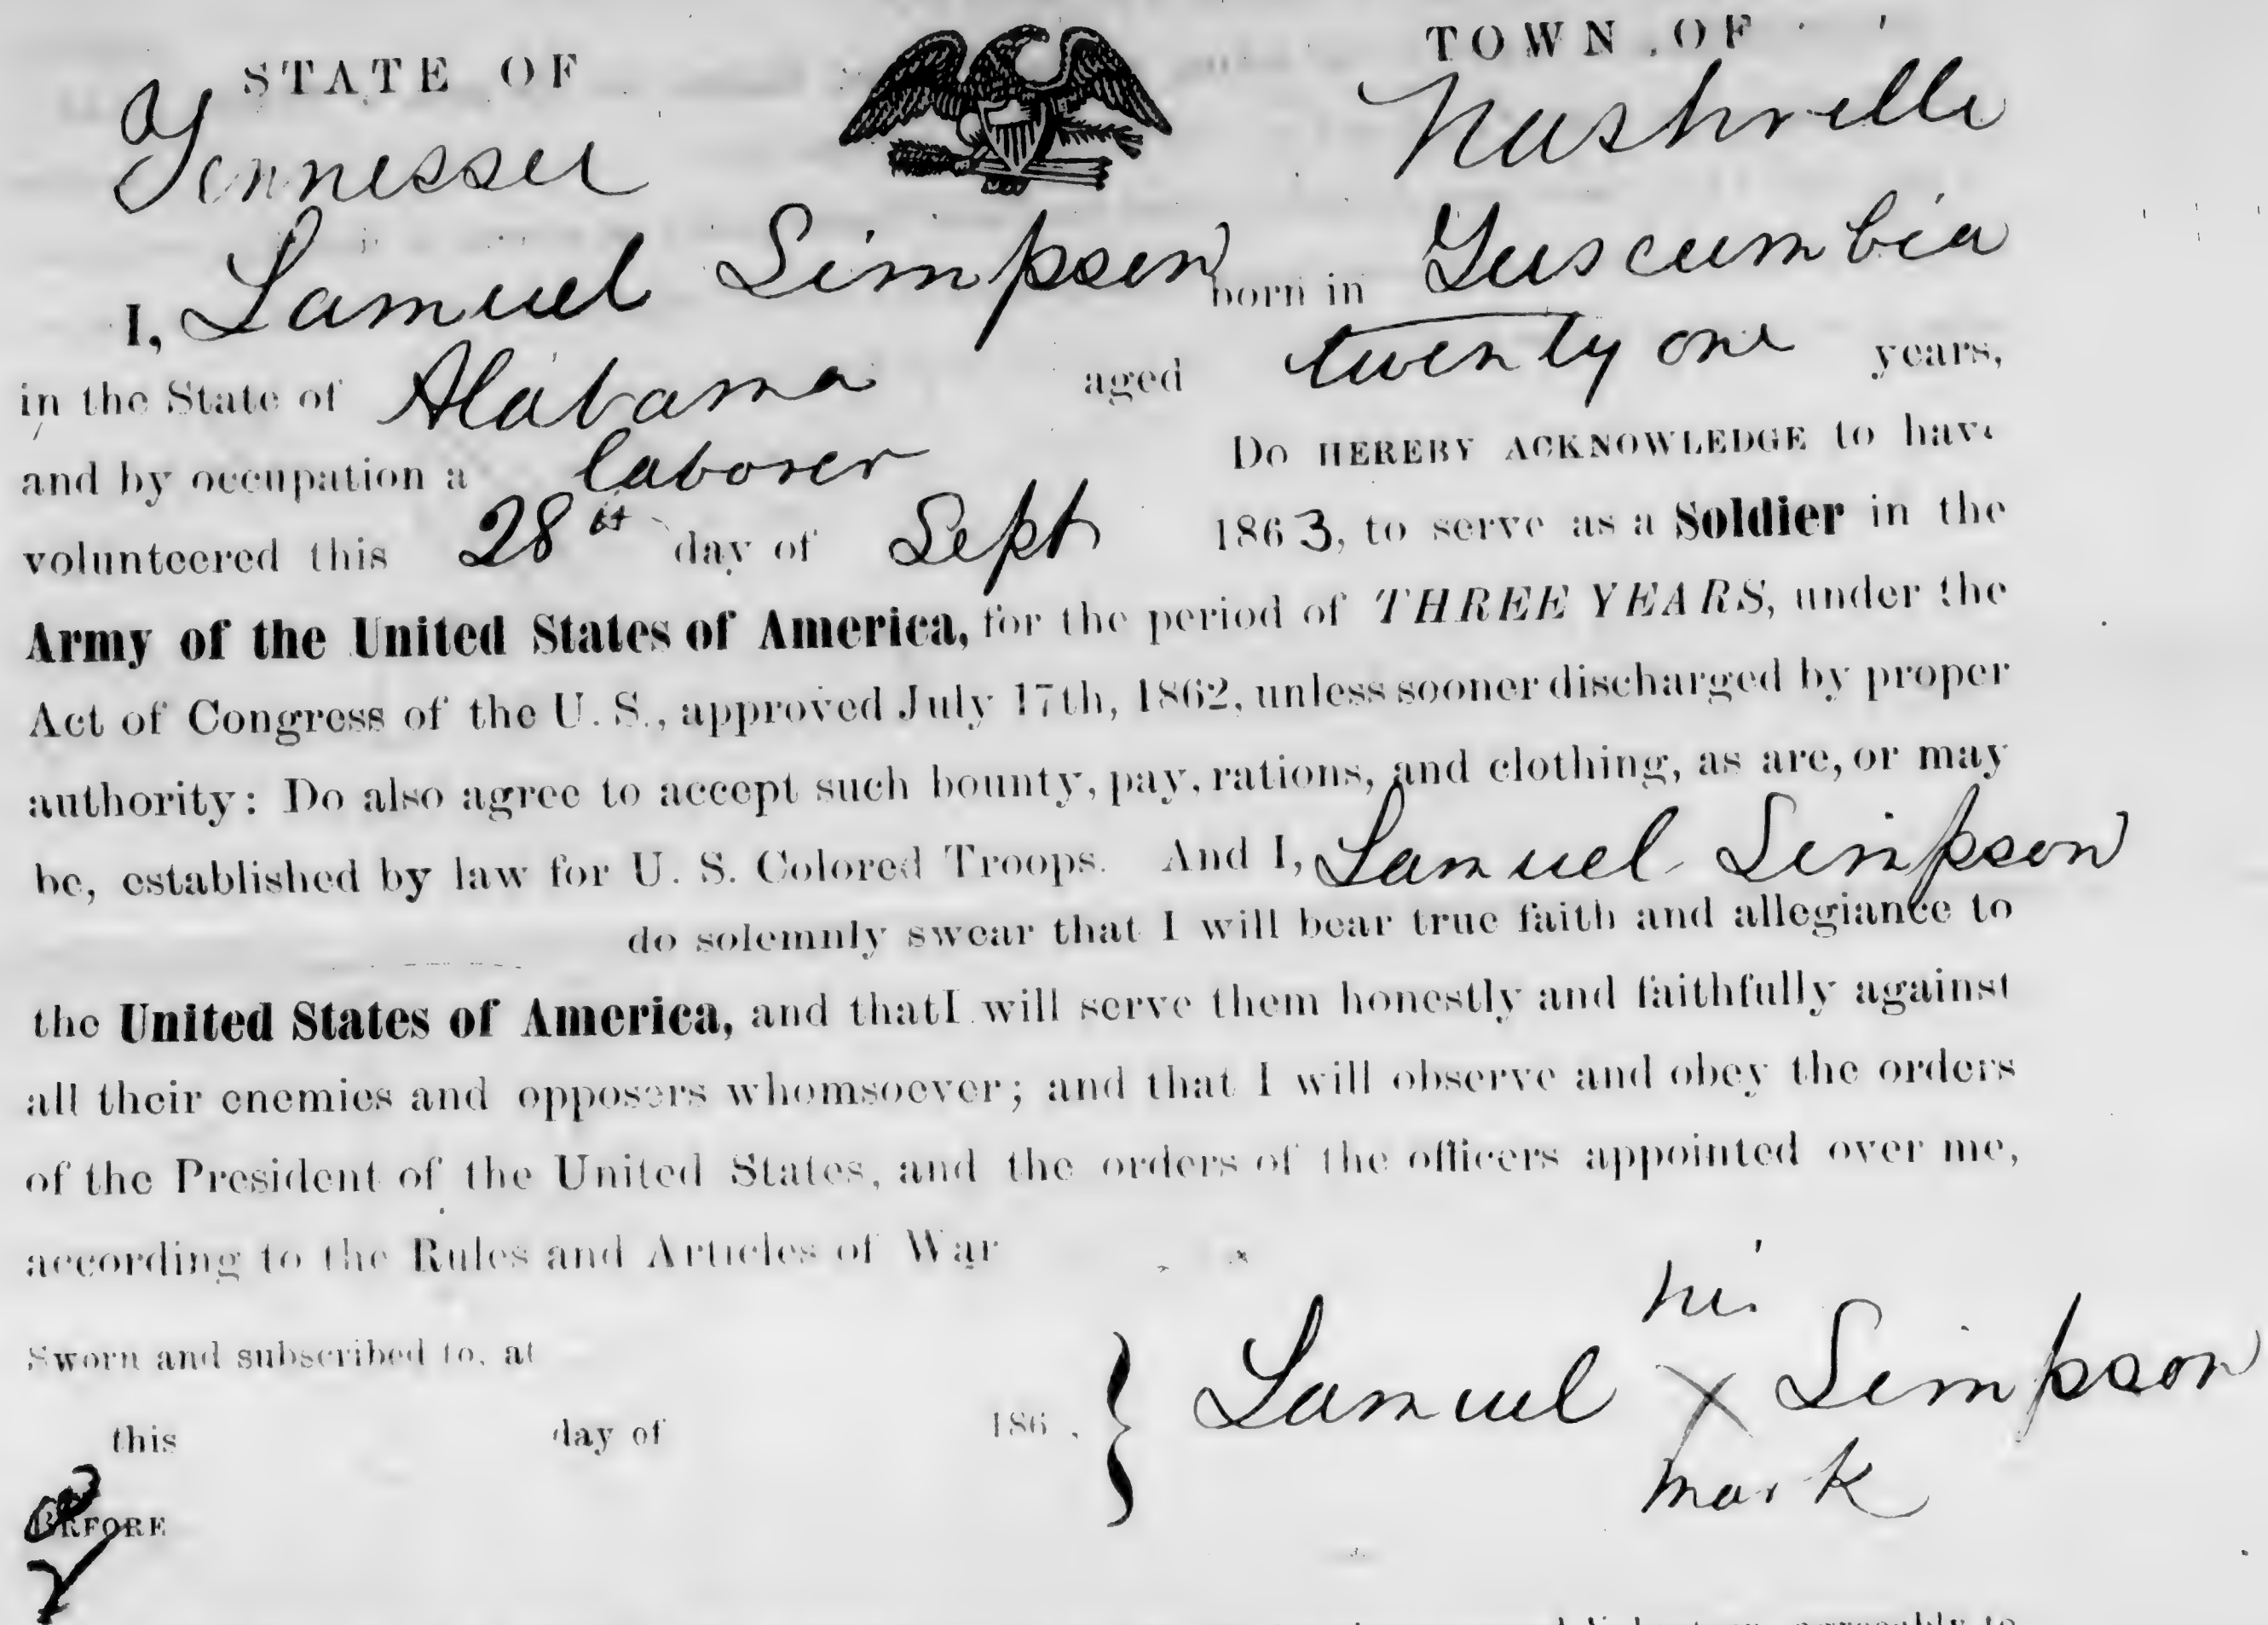 STATE OF
TOWN OF
Tennessee
Nashville
I, Samuel Simpson born in Tuscumbia
in the State of Alabama aged twenty one years,
and by occupation a laborer Do HEREBY ACKNOWLEDGE to have
volunteered this 28th day of Sept 1863, to serve as a Soldier in the
Army of the United States of America, for the period of THREE YEARS, under the
Act of Congress of the U. S., approved July 17th, 1862, unless sooner discharged by proper
authority: Do also agree to accept such bounty, pay, rations, and clothing, as are, or may
be, established by law for U. S. Colored Troops. And I, Samuel Simpson
do solemnly swear that I will bear true faith and allegiance to
the United States of America, and that I will serve them honestly and faithfully against
all their enemies and opposers whomsoever; and that I will observe and obey the orders
of the President of the United States, and the orders of the officers appointed over me,
according to the Rules and Articles of War
Sworn and subscribed to, at
his
this day of 186 . } Samuel X Simpson
mark
BEFORE